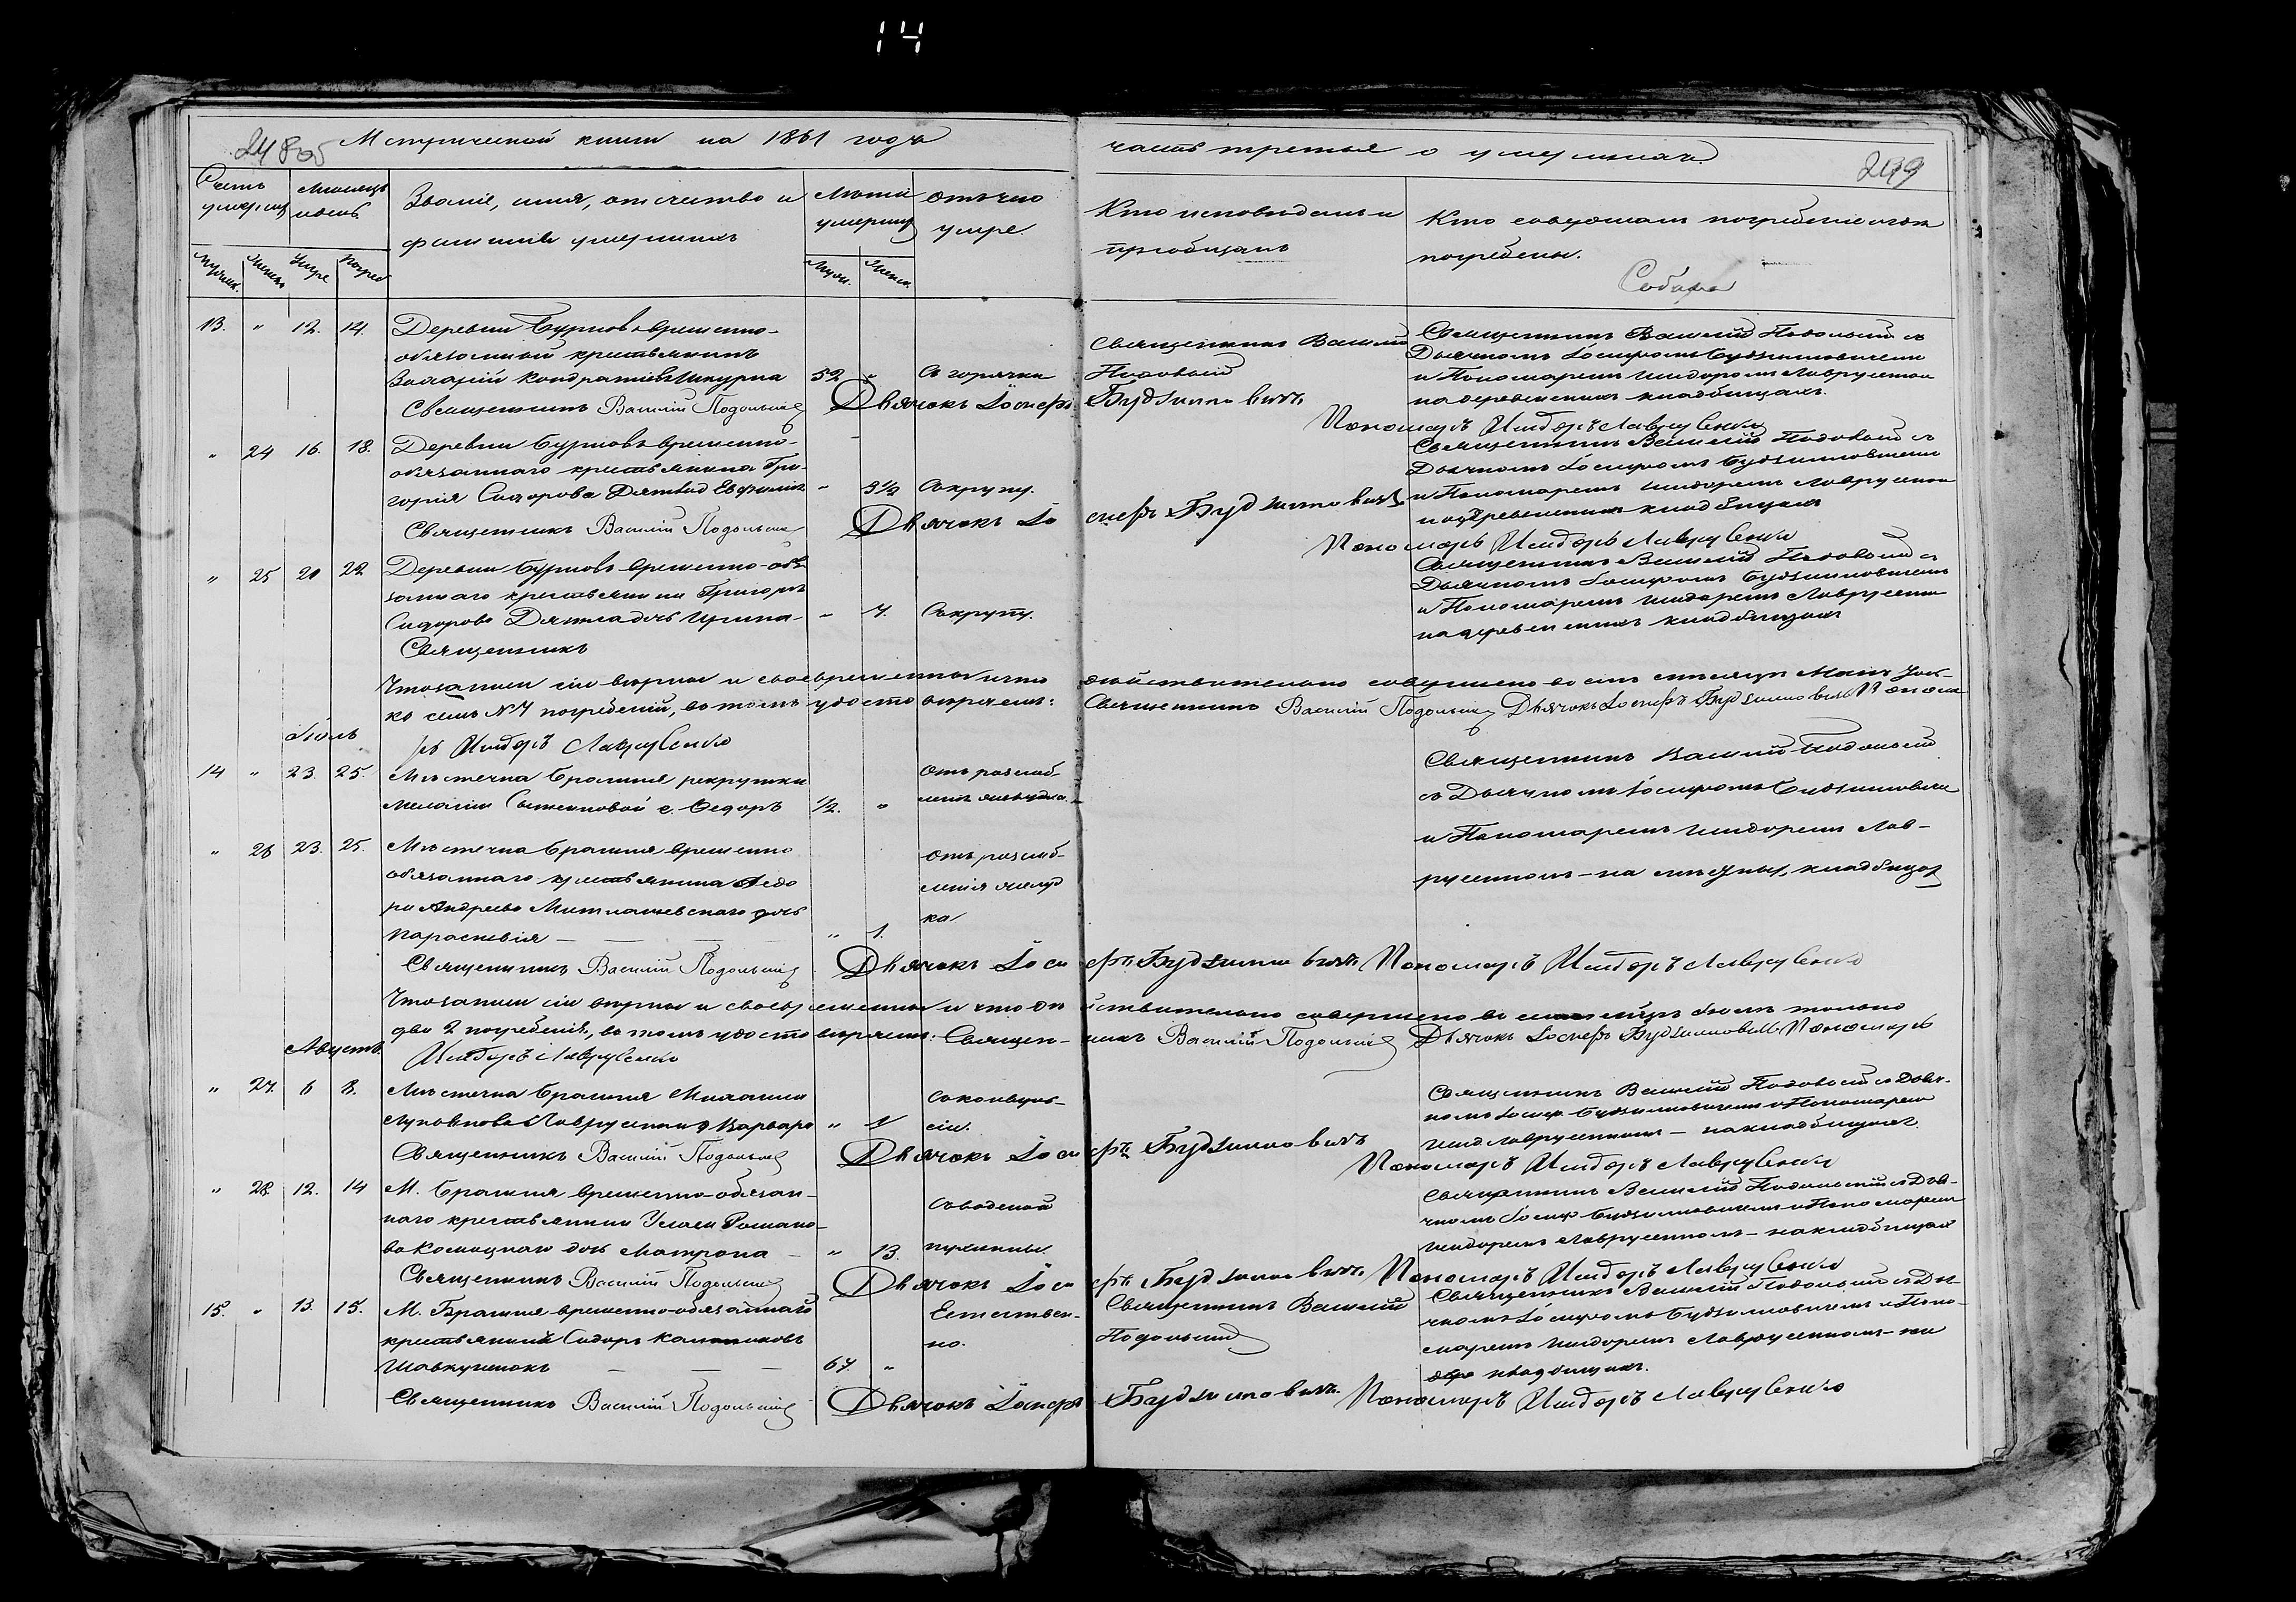 14
Метрической книги на 1861 годъ
часть третья о умершихъ
249
Счетъ умершихъ
Мѣсяцъ и день
Званіе, имя, отчество и
фамилія умершихъ
Лѣта умершихъ
Отъ чего умре.
Кто исповѣдалъ и
пріобщалъ
Кто совершалъ погребеніе и гдѣ
погребены.
Мужск. Женск. Умре Погреб
Муж. Женск.
13. " 12. 14. Деревни временно-
обязанный крестьянинъ
Захарій Кондратіевъ Шкурпа 52 " Съ горячки
Священникъ Василій
Подольскій
Священникъ Василій Подольскій съ
Дьячкомъ Іосифомъ Будзиновичемъ
и Пономаремъ Исидоромъ Лаврусенкомъ
на деревенскихъ кладбищахъ.
Священникъ Василій Подольскій Дьячокъ Іосифъ Будзиновичъ
Пономарь Исидоръ Лаврусенко
" 24 16. 18. Деревни временно-
обязаннаго крестьянина Гри-
горія Сидорова Евфимія " 3½ Съ крупу.
Священникъ Василій Подольскій съ
Дьячкомъ Іосифомъ Будзиновичемъ
и Пономаремъ Исидоромъ Лаврусенкомъ
на деревенскихъ кладбищахъ
Священникъ Василій Подольскій Дьячокъ Іосифъ Будзиновичъ
Пономарь Исидоръ Лаврусенко
" 25 20 22 Деревни временно-обя-
заннаго крестьянина Григорія
Сидорова дочь Ирина " 7. Съ крупу.
Священникъ
Священникъ Василій Подольскій съ
Дьячкомъ Іосифомъ Будзиновичемъ
и Пономаремъ Исидоромъ Лаврусенкомъ
на деревенскихъ кладбищахъ
Что записи сіи вѣрны и своевременны и что дѣйствительно совершено въ семъ мѣсяцѣ
ко семь №7 погребеній, въ томъ удостовѣряемъ: Священникъ Василій Подольскій Дьячокъ Іосифъ Будзиновичъ Понома-
рь Исидоръ Лаврусенко
Іюль
14 " 23. 25. Мѣстечка Брагиня рекрутки
Меланіи с. Федоръ ½. " Отъ разслаб-
ленія желудка.
Священникъ Василій Подольскій
съ Дьячкомъ Іосифомъ Будзиновичемъ
и Пономаремъ Исидоромъ Лав-
русенкомъ - на кладбищахъ
" 26 23. 25. Мѣстечка Брагиня временно
обязаннаго крестьянина Федо
ра Андреева дочь
Параскевія " 1. Отъ разслаб-
ленія желуд
ка
Священникъ Василій Подольскій Дьячокъ Іосифъ Будзиновичъ Пономарь Исидоръ Лаврусенко
Что записи сіи вѣрны и своевременны и что дѣйствительно совершено въ семъ мѣсяцѣ только
два 2 погребенія, въ томъ удостовѣряемъ: Священ-никъ Василій Подольскій Дьячокъ Іосифъ Будзиновичъ Пономарь
Исидоръ Лаврусенко
Августъ
" 27. 6 8. Мѣстечка Брагиня Михаила
Лаврусенка д. Варвара " 1 Съ конвуль-
сіи.
Священникъ Василій Подольскій съ Дьяч-
комъ Іосиф. Будзиновичемъ и Пономаремъ
Исид. Лаврусенкомъ - на кладбищахъ.
Священникъ Василій Подольскій Дьячокъ Іосифъ Будзиновичъ
Пономарь Исидоръ Лаврусенко
" 28. 12. 14 М. Брагиня временно-обязан-
наго крестьянина Романо-
ва дочь Матрона " 13. Съ водяной
пухлины.
Священникъ Василій Подольскій съ Дья-
чкомъ Іосиф. Будзиновичемъ и Пономаремъ
Исидоромъ Лаврусенкомъ - на кладбищахъ
Священникъ Василій Подольскій Дьячокъ Іосифъ Будзиновичъ Пономарь Исидоръ Лаврусенко
15. " 13. 15. М. Брагиня временно-обязаннаго
крестьянина Сидоръ
67. " Естествен-
но.
Священникъ Василій
Подольскій
Священникъ Василій Подольскій съ Дья-
чкомъ Іосифомъ Будзиновичемъ и Поно-
маремъ Исидоромъ Лаврусенкомъ - на
кладбищахъ.
Священникъ Василій Подольскій Дьячокъ Іосифъ Будзиновичъ. Пономарь Исидоръ Лаврусенко